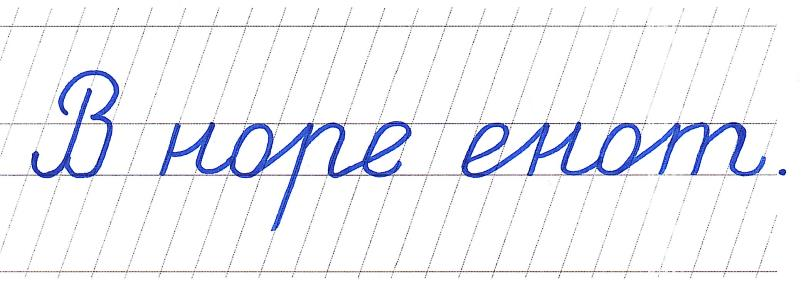 В норе енот.